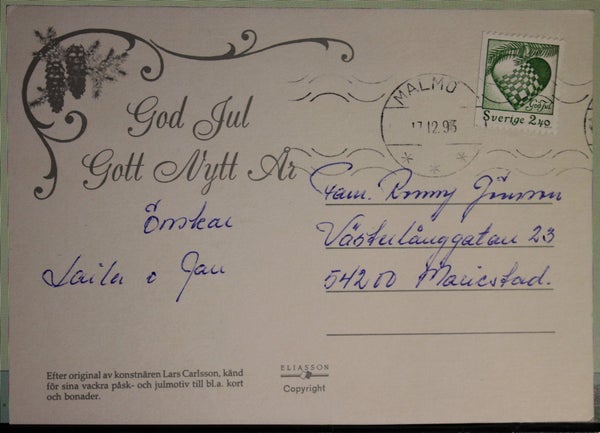 God Jul
Gott Nytt År
Önskar
Laila o Jan
MALMÖ
17.12.93
God Jul
Sverige 2,40
Fam. Ronny Jönsson
Västerlånggatan 23
542 00 Mariestad.
Efter original av konstnären Lars Carlsson, känd
för sina vackra påsk- och julmotiv till bl.a. kort
och bonader.
ELIASSON
Copyright